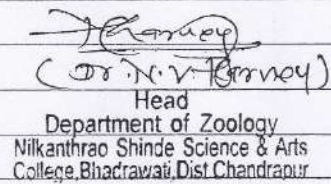 (Dr. N. V. Harney)
Head
Department of Zoology
Nilkanthrao Shinde Science & Arts
College,Bhadrawati,Dist Chandrapur